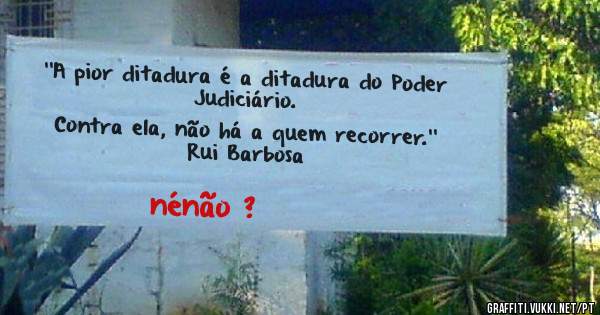 "A pior ditadura é a ditadura do Poder
Judiciário.
Contra ela, não há a quem recorrer."
Rui Barbosa
nénão ?
GRAFFITI.VUKKI.NET/PT